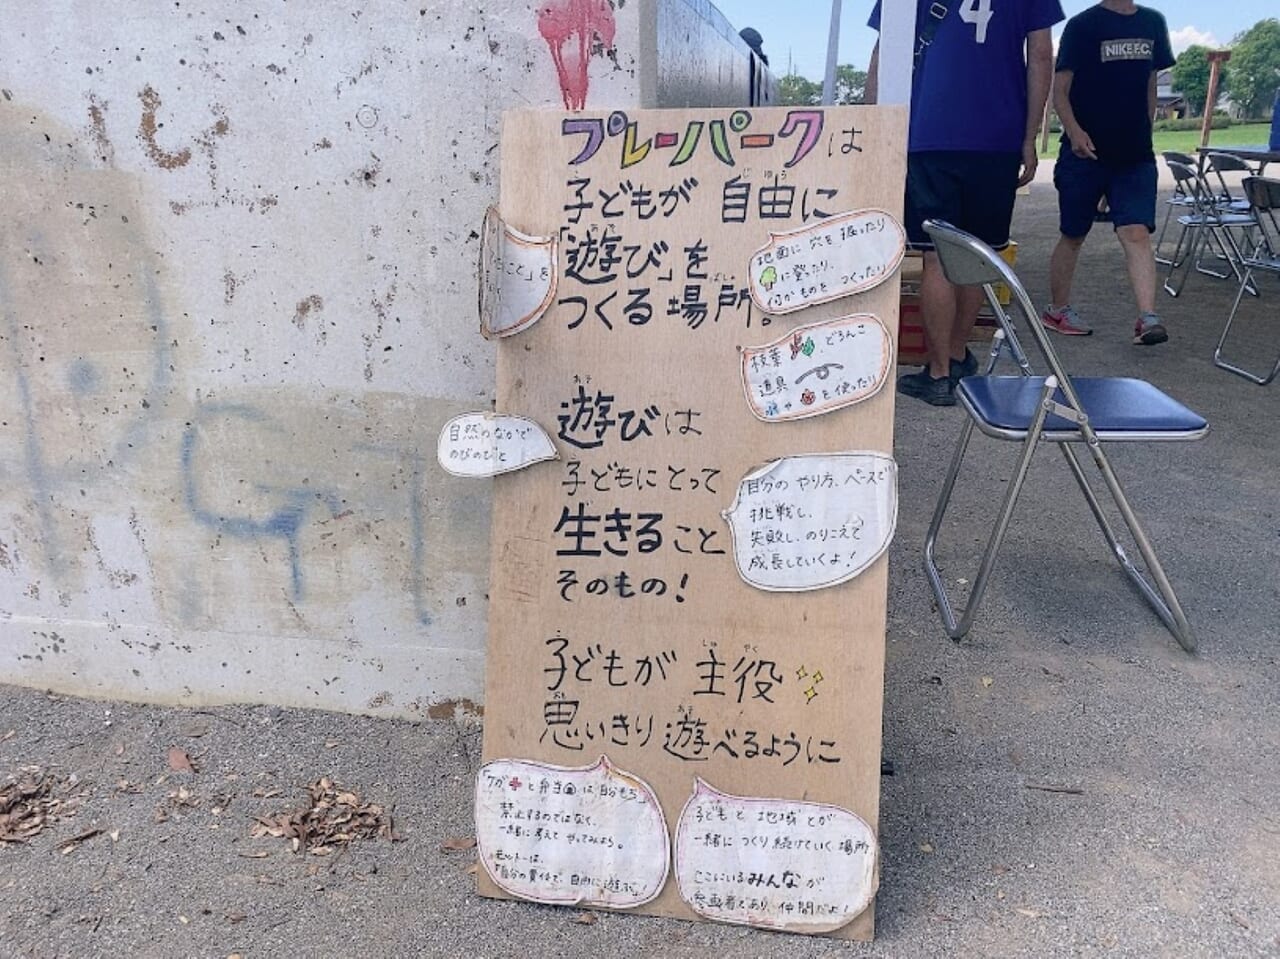 プレーパークは
じゆう
子どもが 自由に
あそ
「遊び」を
ばしょ
つくる 場所。
地面に 穴を 掘ったり
に登ったり、
何かものを つくったり
枝葉 、どろんこ
道具
や を使ったり
こと」を
あそ
遊びは
子どもにとって
生きること
そのもの!
自然のなかで
のびのびと
自分の やり方、ペースで
挑戦し、
失敗し、のりこえて
成長していくよ!
しゅ やく
子どもが 主役
おも あそ
思いきり 遊べるように
「ケガ と 弁当 は 自分もち」
禁止するのではなく、
一緒に考えて やってみよう。
モットーは、
「自分の責任で、自由に遊ぶ」!
子どもと 地域とが
一緒に つくり続けていく 場所
ここにいるみんなが、
参画者であり、仲間だよ!
4
NIKE F.C.